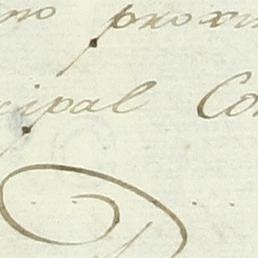 no proxi
cipal Co